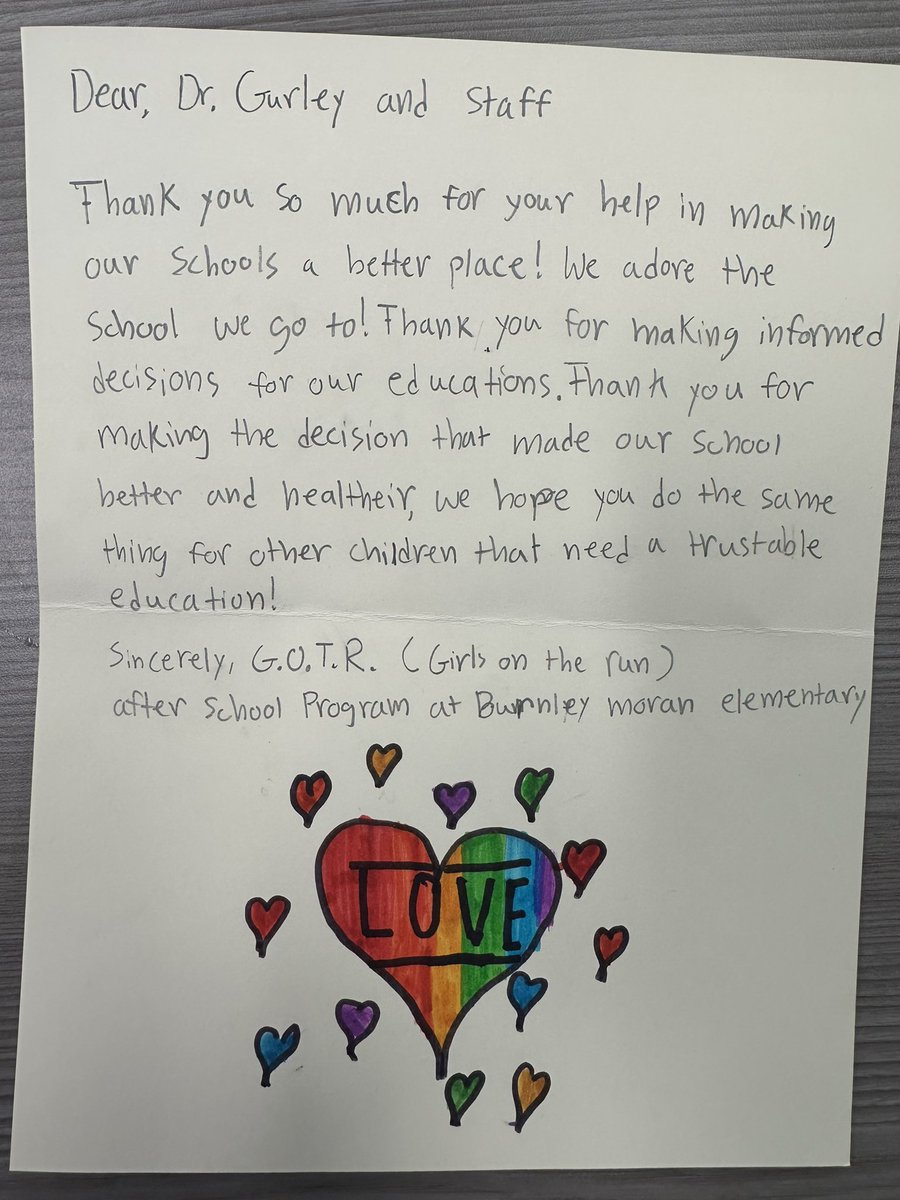 Dear, Dr. Gurley and Staff
Thank you so much for your help in making
our schools a better place! We adore the
school we go to! Thank you for making informed
decisions for our educations. Thank you for
making the decision that made our school
better and healtheir, we hope you do the same
thing for other children that need a trustable
education!
Sincerely, G.O.T.R. (Girls on the run)
after School Program at Burnley moran elementary
LOVE